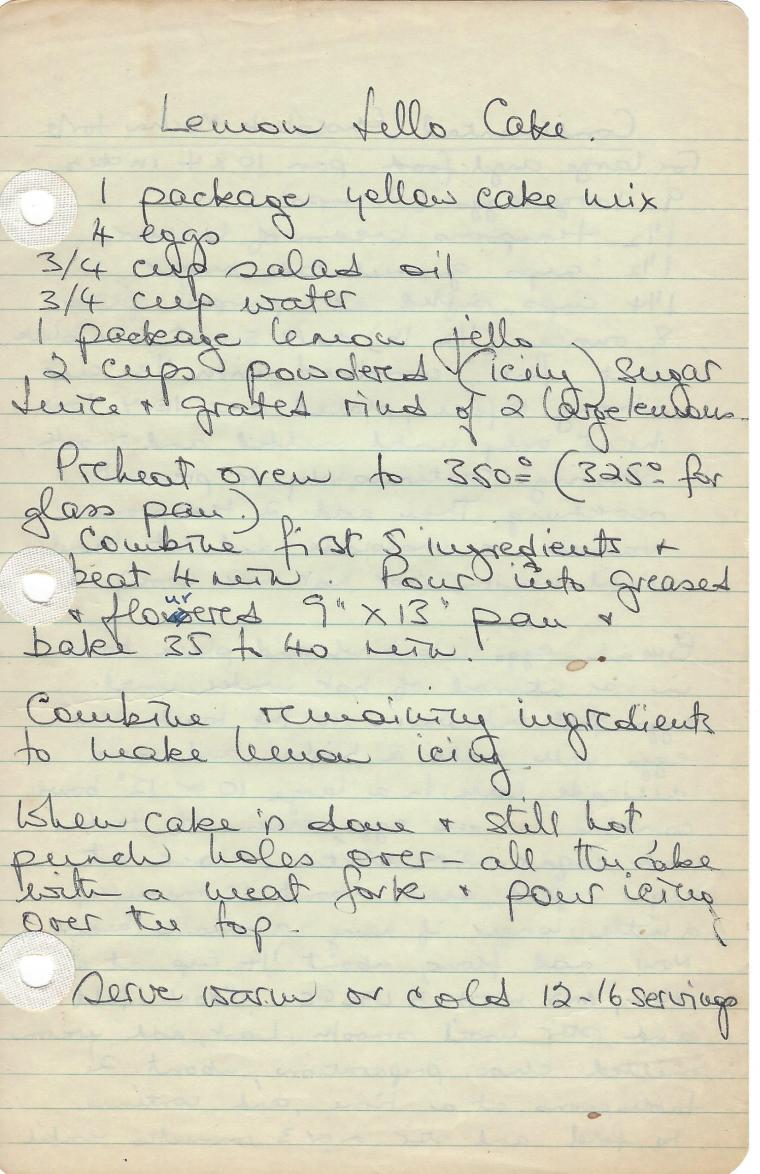 Lemon Jello Cake.
1 package yellow cake mix
4 eggs
3/4 cup salad oil
3/4 cup water
1 package lemon jello
2 cups powdered (icing) sugar
Juice + grated rind of 2 large lemons.
Preheat oven to 350° (325° for
glass pan.)
Combine first 5 ingredients +
beat 4 min. Pour into greased
+ floured 9" X 13" pan +
bake 35 to 40 min.
Combine remaining ingredients
to make lemon icing.
When cake is done + still hot
punch holes over-all the cake
with a meat fork + pour icing
over the top.
Serve warm or cold 12-16 servings